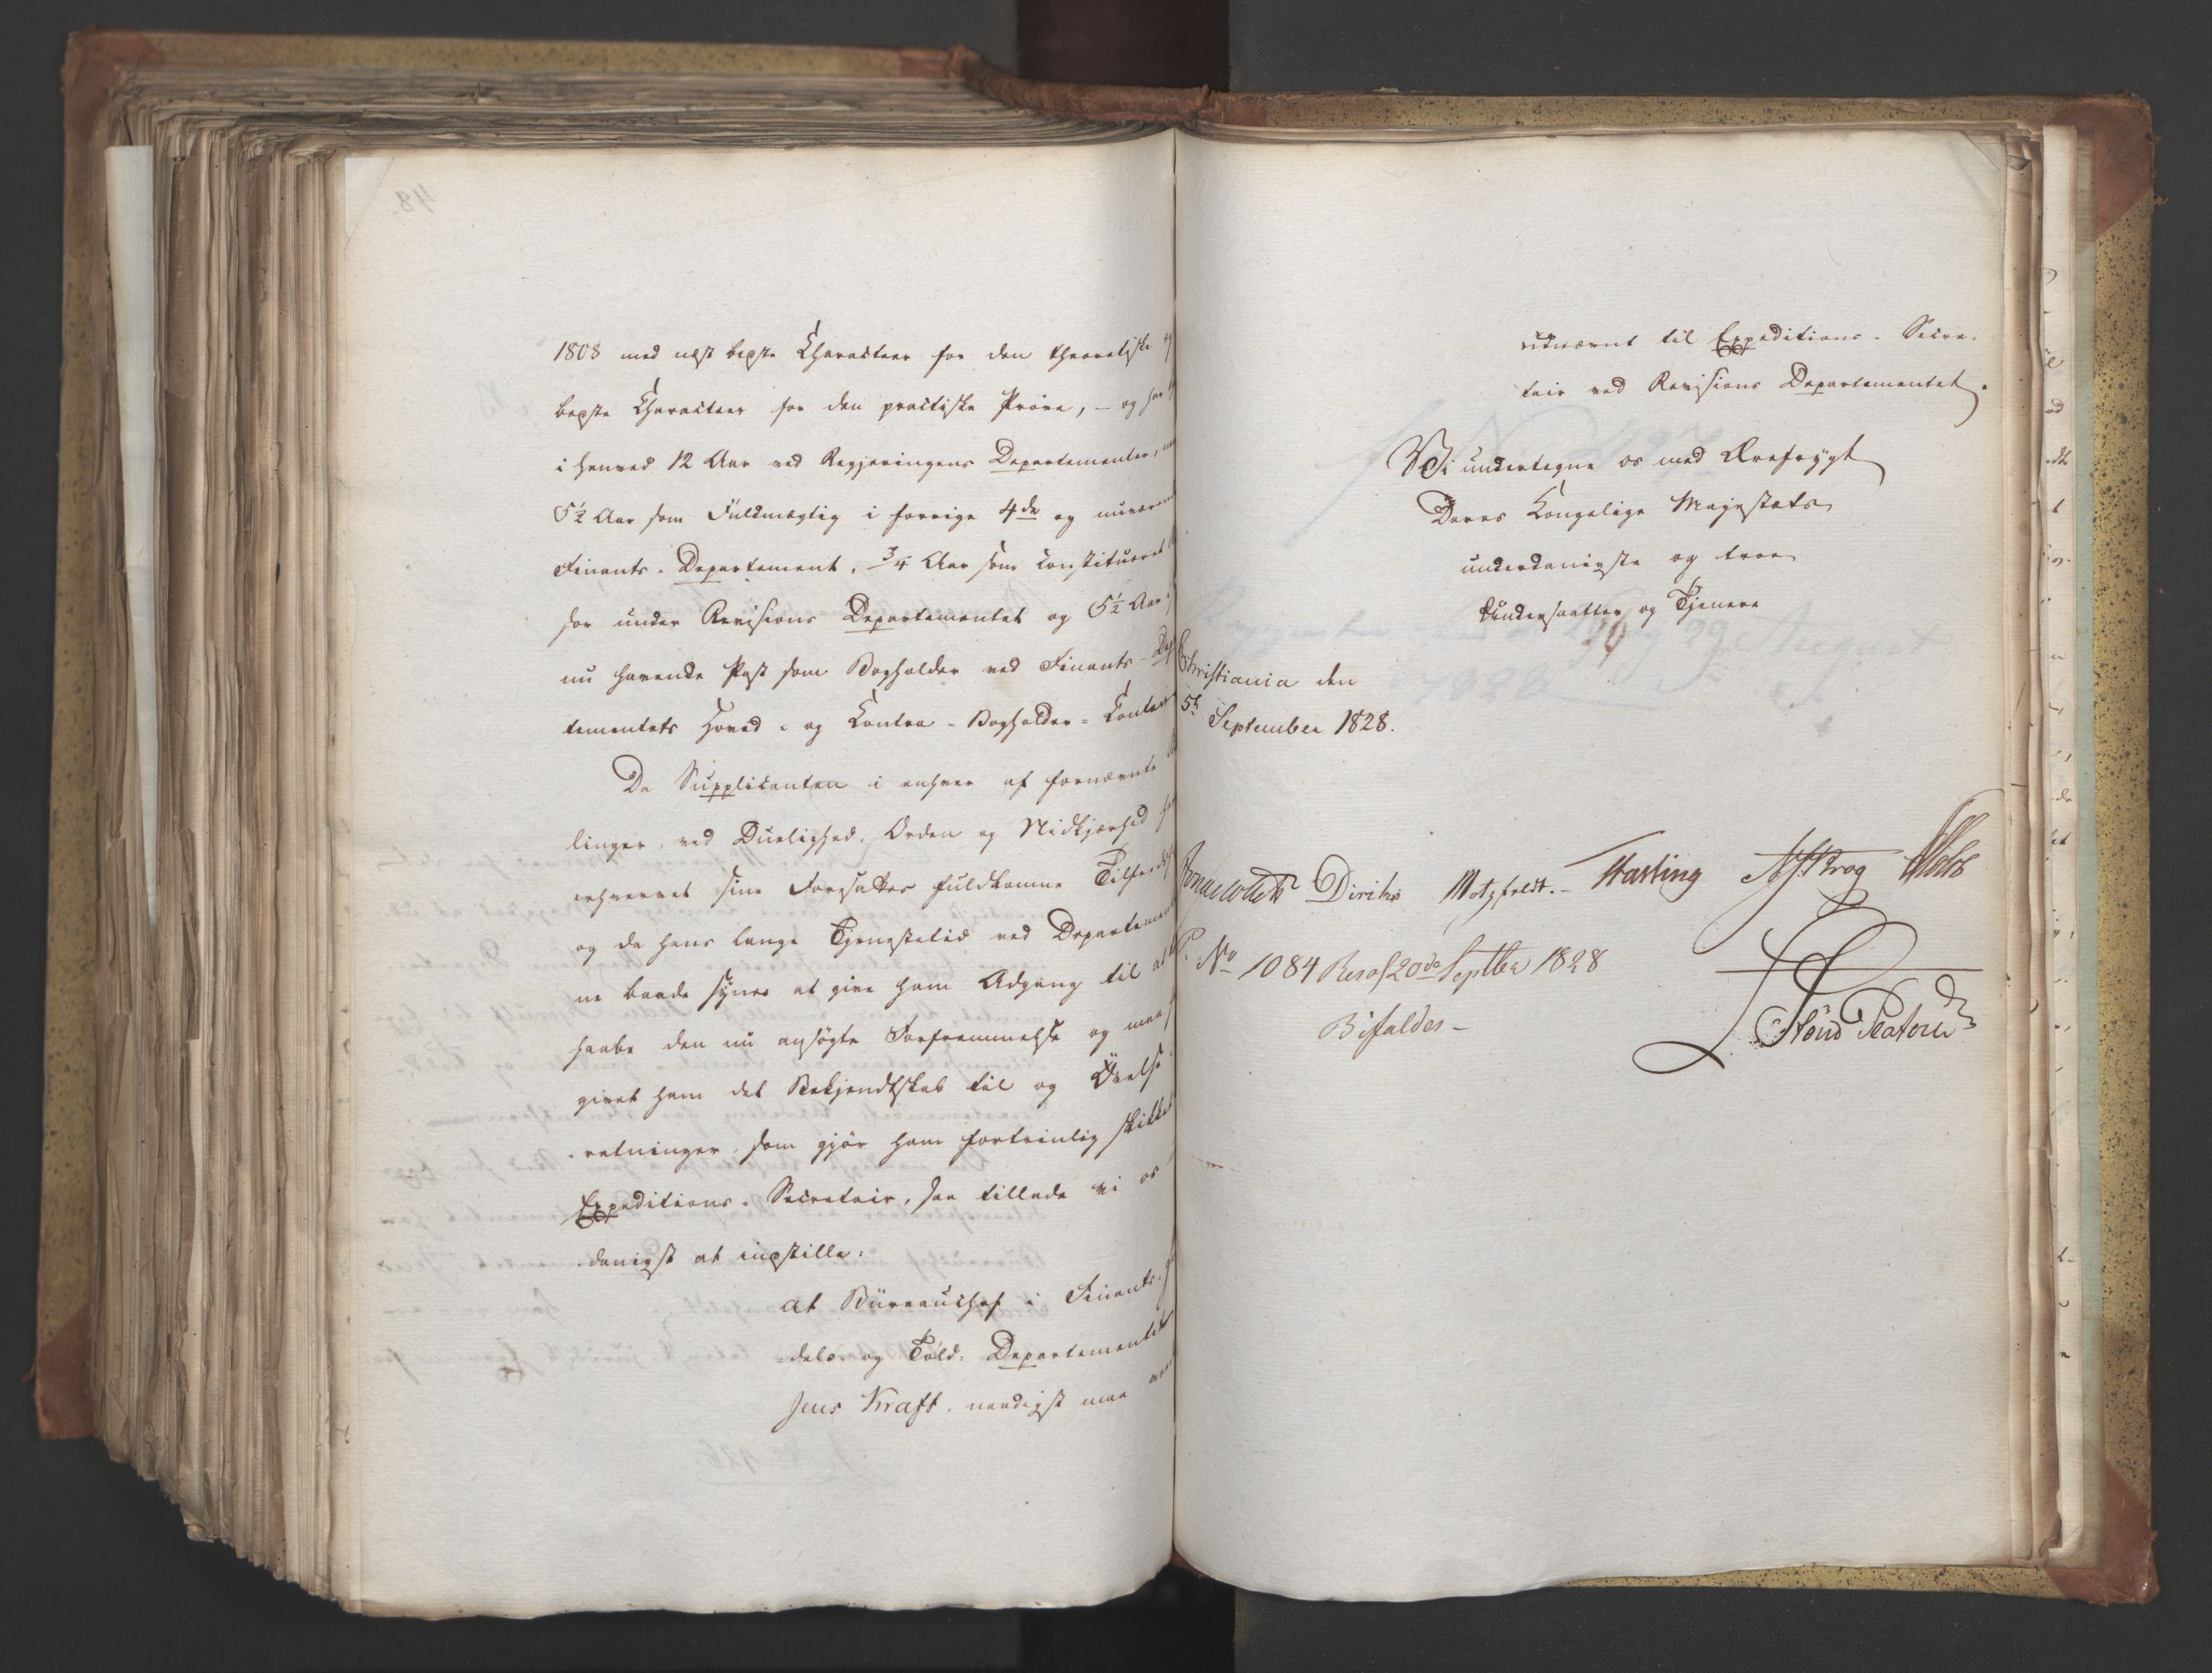 1808 med næst bæste Characteer for den theoretiske
bæste Characteer for den practiske Prøve, – og har
i henved 12 Aar ved Regjeringens Departementer,
5½ Aar som Fuldmægtig i forrige 4de og nuværend
Finants-Departement, ¾ Aar som constitueret
sor under Revisions Departementet og 5½ Aar i
nu havende Post som Bogholder ved Finants-Dep
tementets Hoved- og Contra-Bogholder-Contoir
Da Supplicanten i enhver af fornævnte
linger, ved Duelighed, Orden og Nidkjærhed har
erhvervet sine Foresattes fuldkomne Tilfreds
og da hans lange Tjenestetid ved Departement
ne baade synes at give ham Adgang til at
haabe den nu ansøgte Forfremmelse og maa
givet ham det Bekjendtskab til og Øvelse
retninger, som gjør ham fortrinlig skikket
Expeditions-Secretair, saa tillade vi os
danigst at indstille:
at Büreauchef i Finants-
dels- og Told-Departementet
Jens Kraft, naadigst maa
udnævnt til Expeditions-Secre-
tair ved Revisions Departementet.
Vi undertegne os med Ærefrygt
Deres Kongelige Majestæts
underdanigste og troe
Undersaatter og Tjenere
Christiania den
5te September 1828.
Jonas Collett Diriks Motzfeldt. – Fasting Krog Holst
P. No 1084 Resol 20de Septbr 1828
Bifaldes –